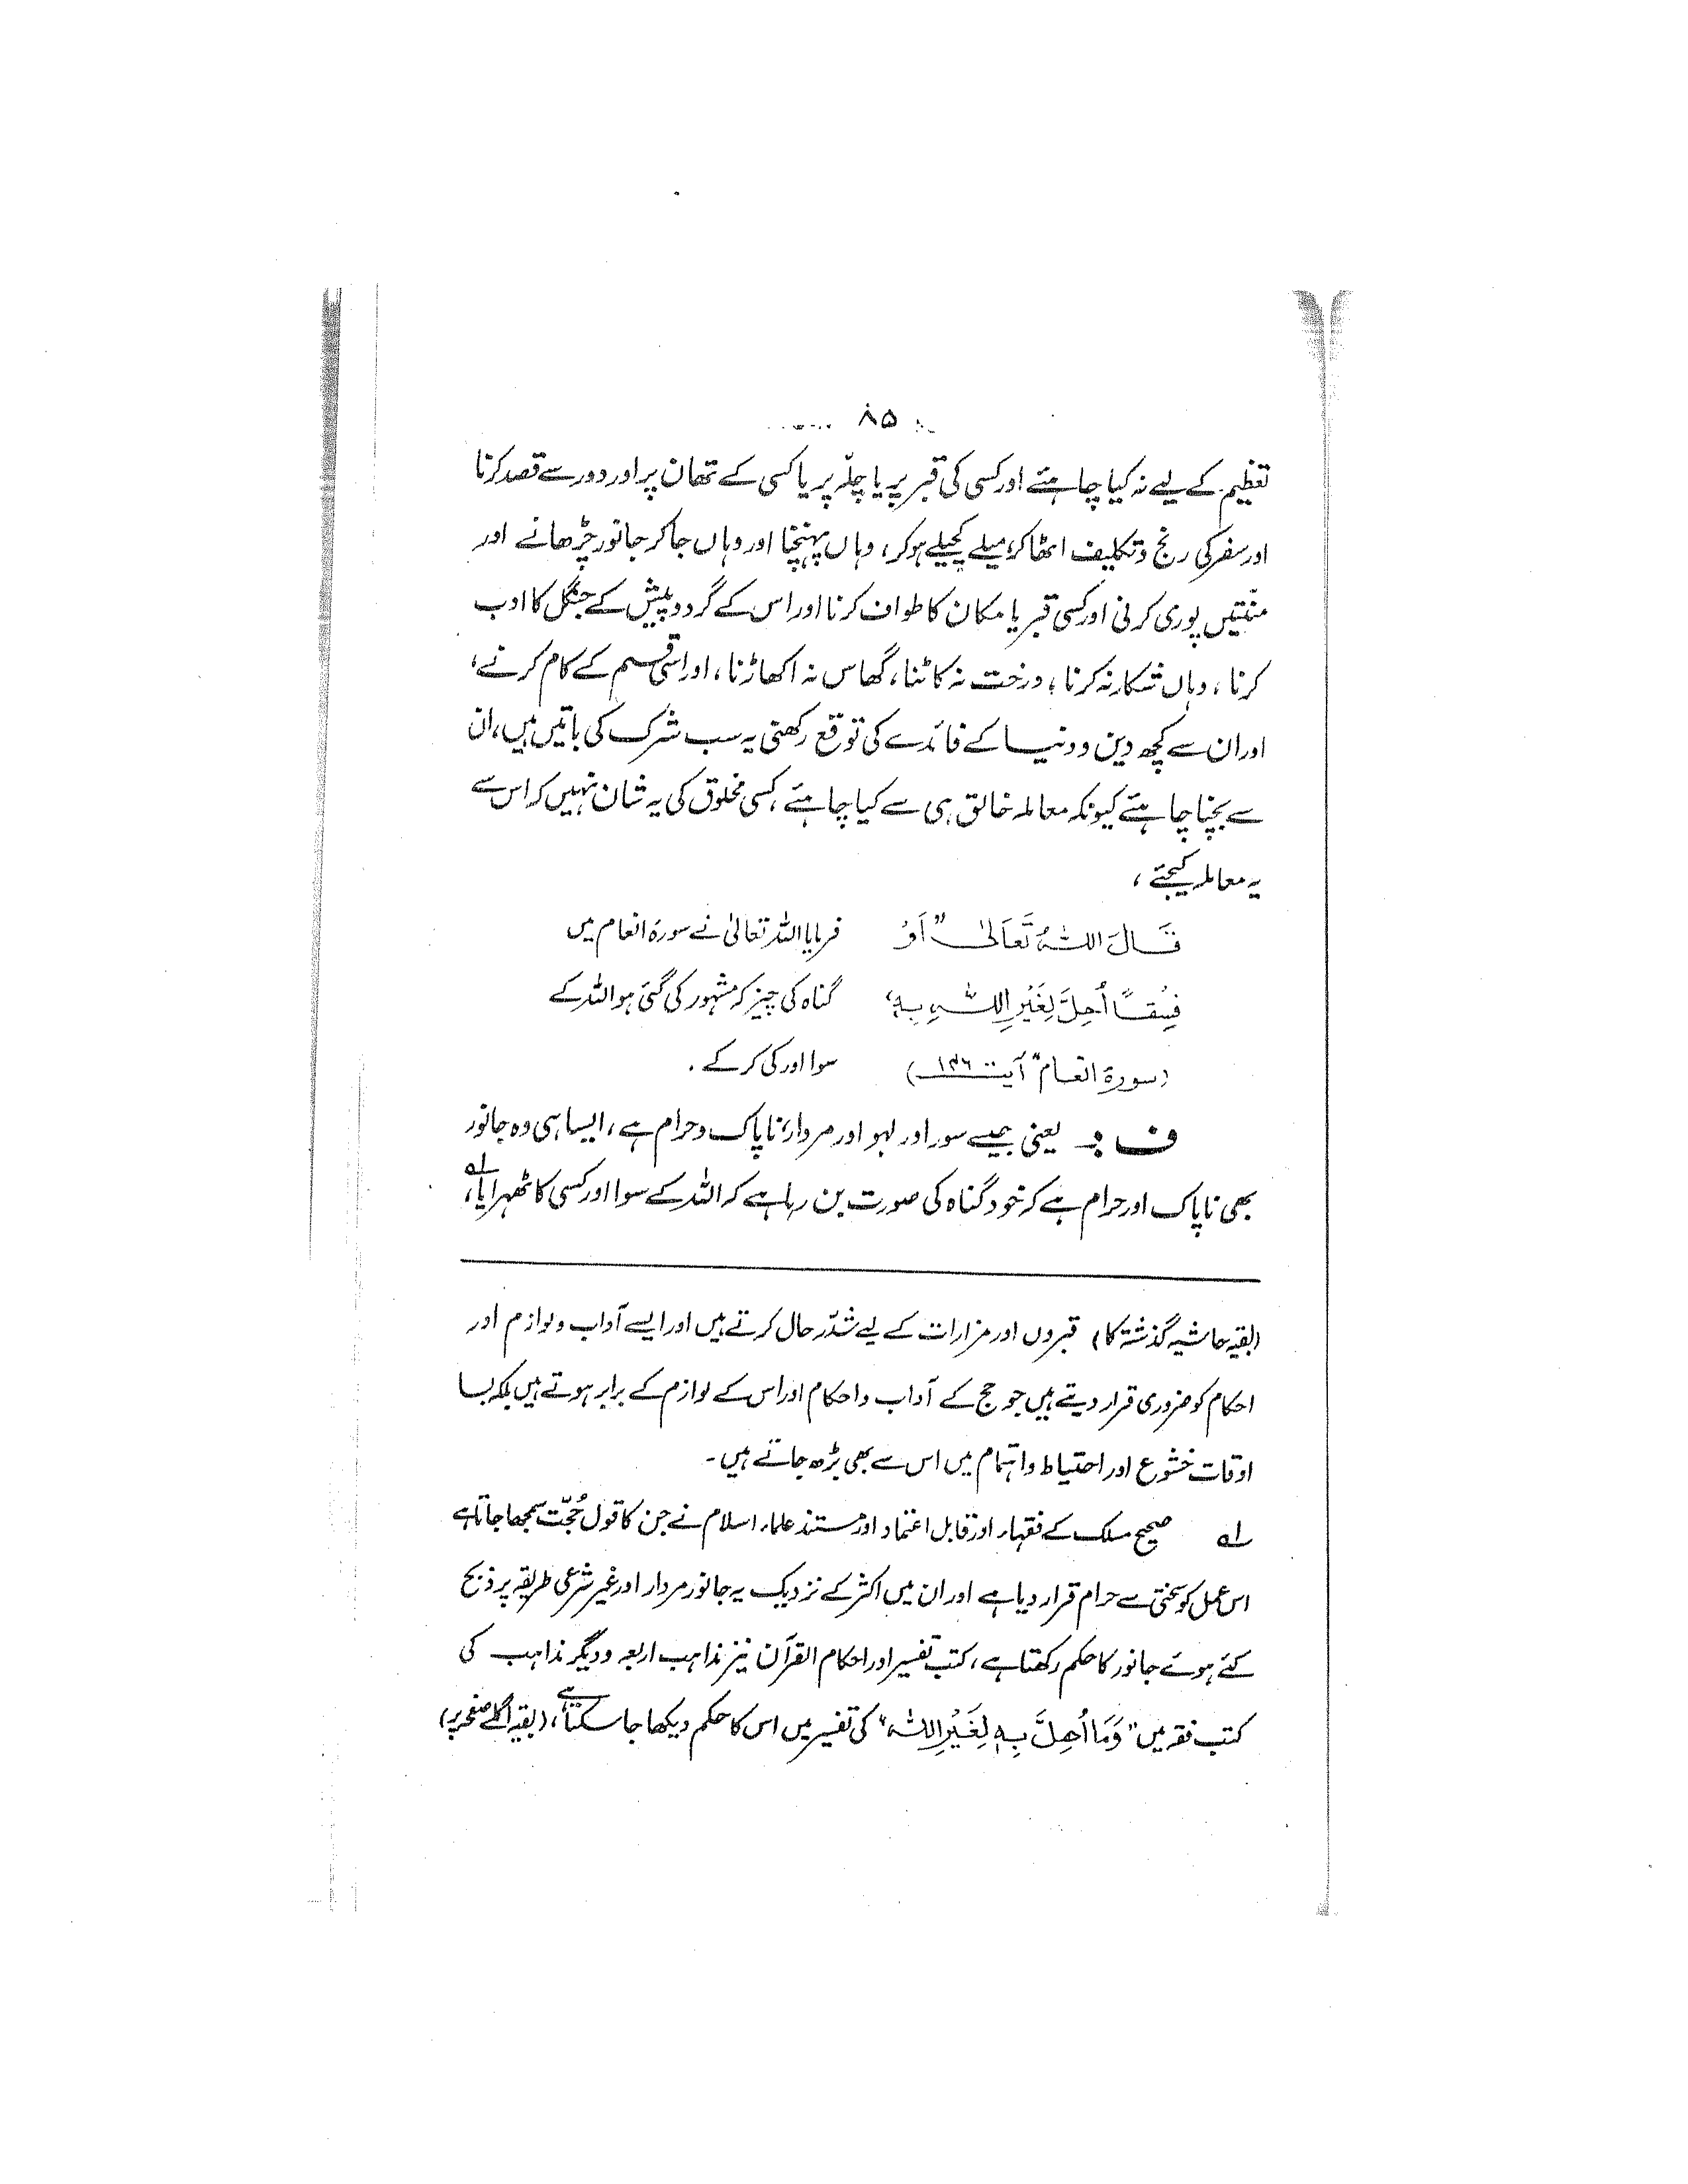 ۸۵
تعظیم کے لیے نہ کیا چاہئے اور کسی کی قبر پر یا چلّہ پر یا کسی کے تھان پر اور دور سے قصد کرنا
اور سفر کی رنج و تکلیف اٹھا کر، میلے کچیلے ہو کر، وہاں پہنچنا اور وہاں جا کر جانور چڑھانے اور
منّتیں پوری کرنی اور کسی قبر یا مکان کا طواف کرنا اور اس کے گرد و پیش کے جنگل کا ادب
کرنا، وہاں شکار نہ کرنا، درخت نہ کاٹنا، گھاس نہ اکھاڑنا، اور اسی قسم کے کام کرنے،
اور ان سے کچھ دین و دنیا کے فائدے کی توقع رکھنی یہ سب شرک کی باتیں ہیں، ان
سے بچنا چاہئے کیونکہ معاملہ خالق ہی سے کیا چاہئے، کسی مخلوق کی یہ شان نہیں کہ اس سے
یہ معاملہ کیجئے،
قَالَ اللّٰہُ تَعَالیٰ "اَوْ فرمایا اللہ تعالیٰ نے سورۃ انعام میں
فِسْقًا اُھِلَّ لِغَیْرِ اللّٰہِ بِہٖ، گناہ کی چیز کہ مشہور کی گئی ہو اللہ کے
(سورۃ انعام آیت ۱۴۶) سوا اور کی کر کے۔
ف :۔ یعنی جیسے سور اور لہو اور مردار، ناپاک و حرام ہے، ایسا ہی وہ جانور
بھی ناپاک اور حرام ہے کہ خود گناہ کی صورت بن رہا ہے کہ اللہ کے سوا اور کسی کا ٹھہرایا،لہ
(بقیہ حاشیہ گذشتہ کا) قبروں اور مزارات کے لیے شدّ رحال کرتے ہیں اور ایسے آداب و لوازم اور
احکام کو ضروری قرار دیتے ہیں جو حج کے آداب و احکام اور اس کے لوازم کے برابر ہوتے ہیں بلکہ بسا
اوقات خشوع اور احتیاط و اہتمام میں اس سے بھی بڑھ جاتے ہیں۔
لہ صحیح مسلک کے فقہاء اور قابل اعتماد اور مستند علماء اسلام نے جن کا قول حُجّت سمجھا جاتا ہے
اس عمل کو سختی سے حرام قرار دیا ہے اور ان میں اکثر کے نزدیک یہ جانور مردار اور غیر شرعی طریقہ پر ذبح
کئے ہوئے جانور کا حکم رکھتا ہے، کتب تفسیر اور احکام القرآن نیز مذاہب اربعہ و دیگر مذاہب کی
کتب فقہ میں "وَمَا اُھِلَّ بِہٖ لِغَیْرِ اللّٰہ" کی تفسیر میں اس کا حکم دیکھا جا سکتا ہے، (بقیہ اگلے صفحہ پر)